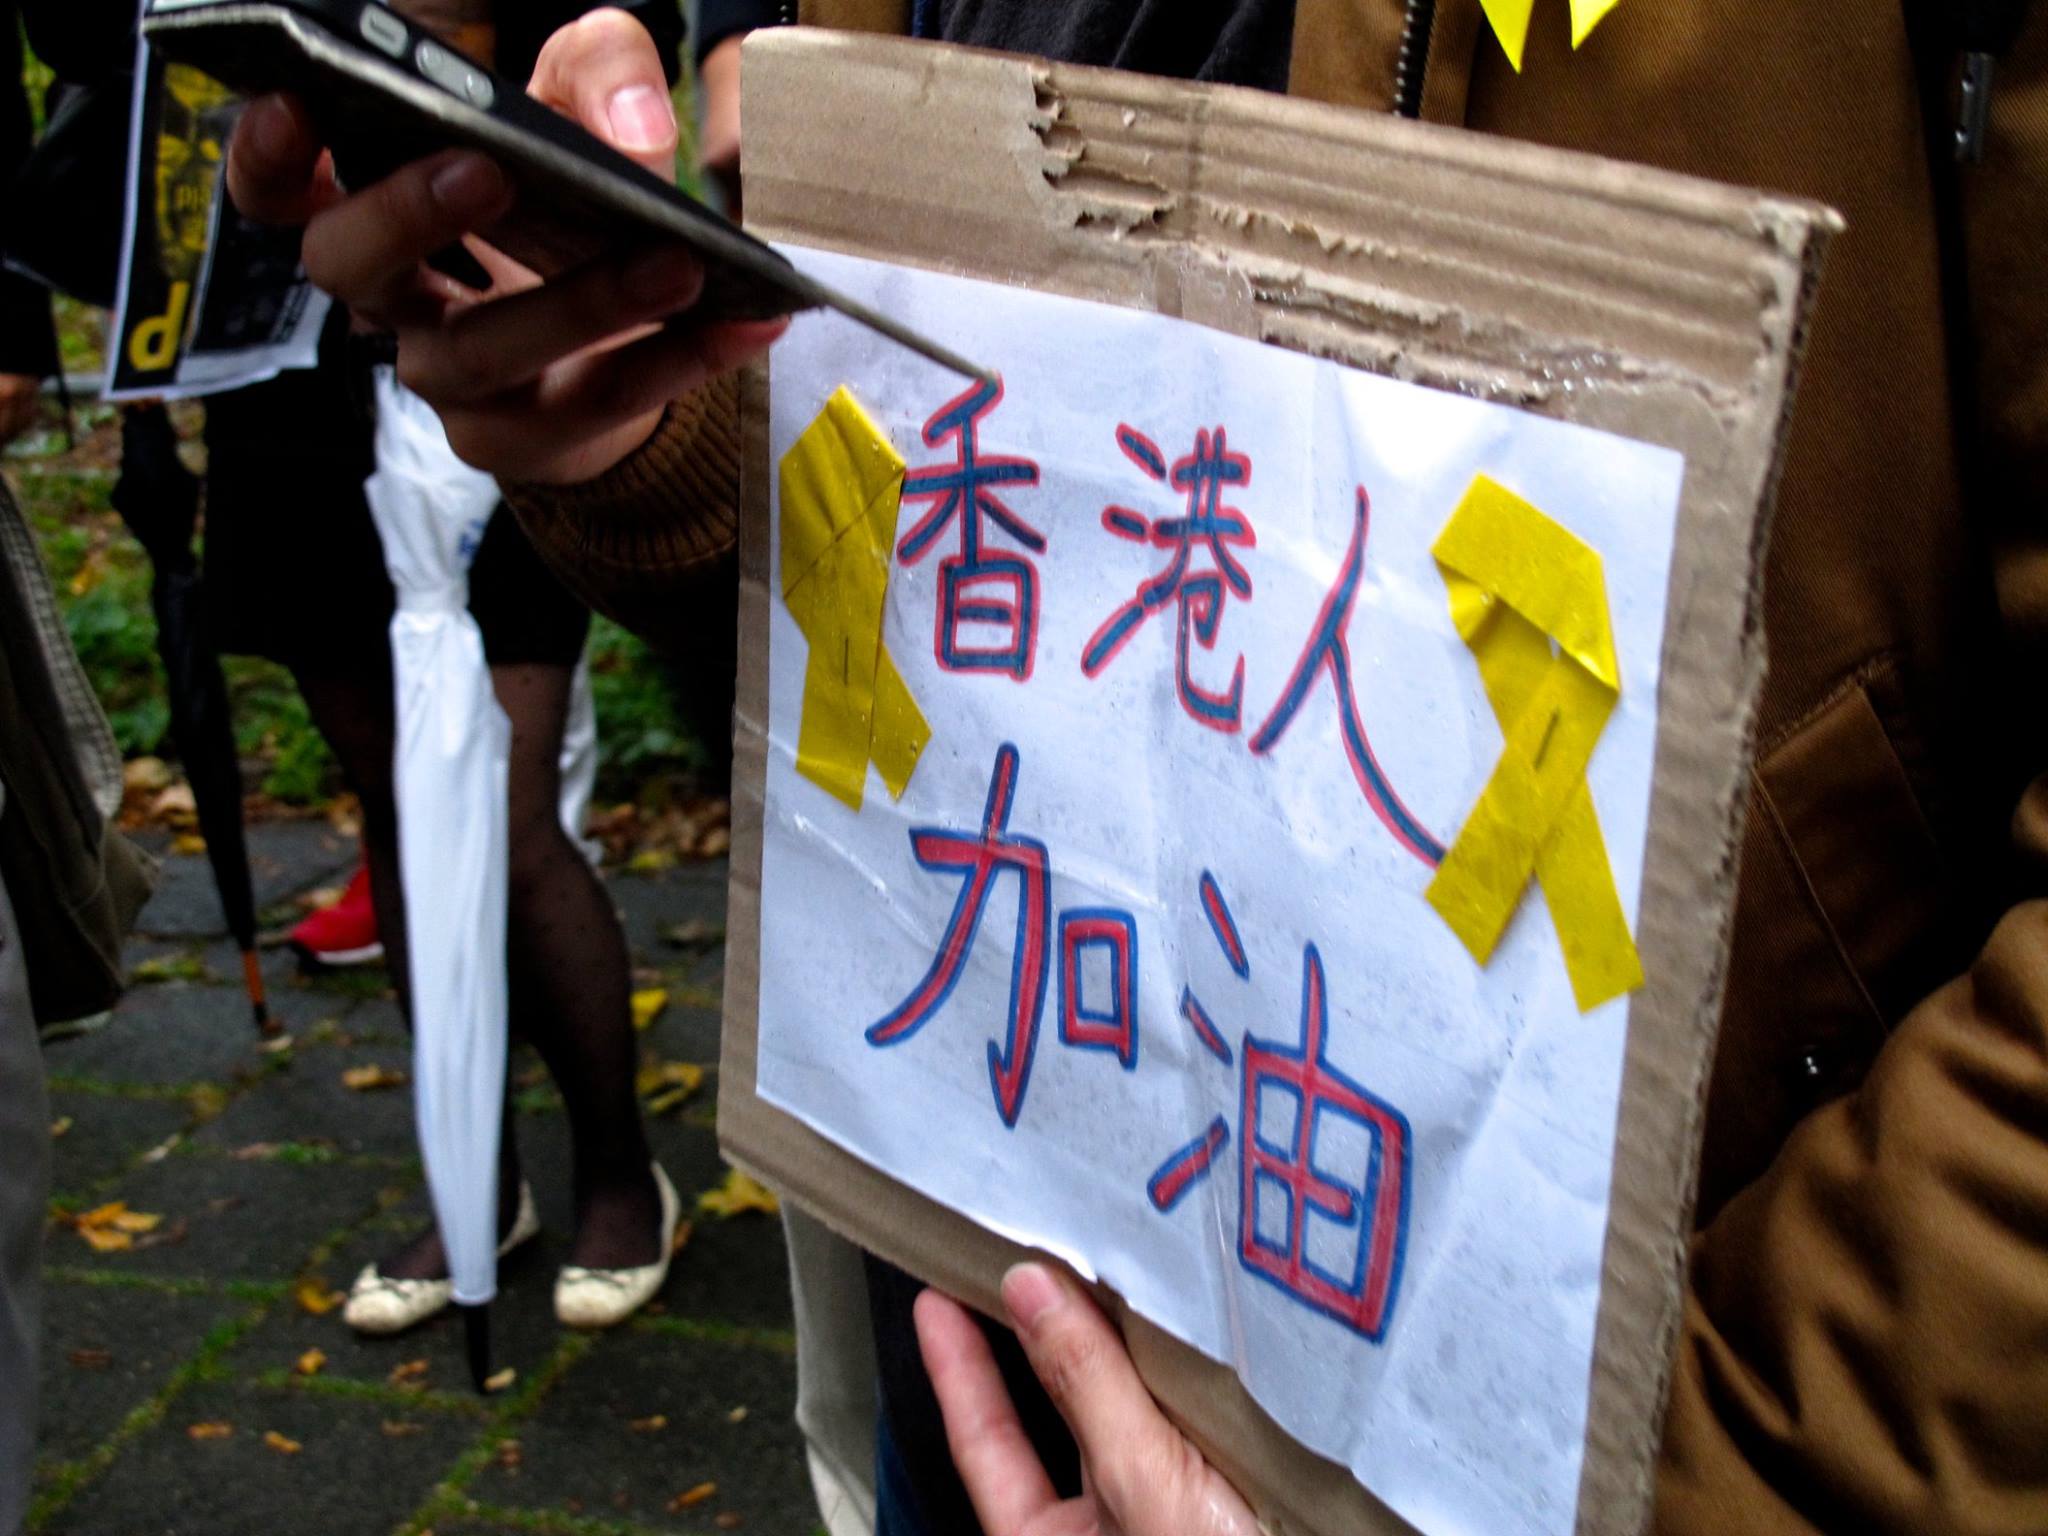 香港人
加油